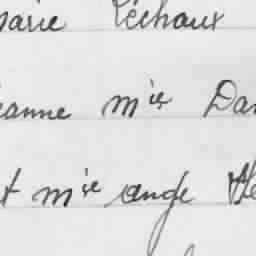 marie Péchaux
eanne mie Dan
t mie ange the